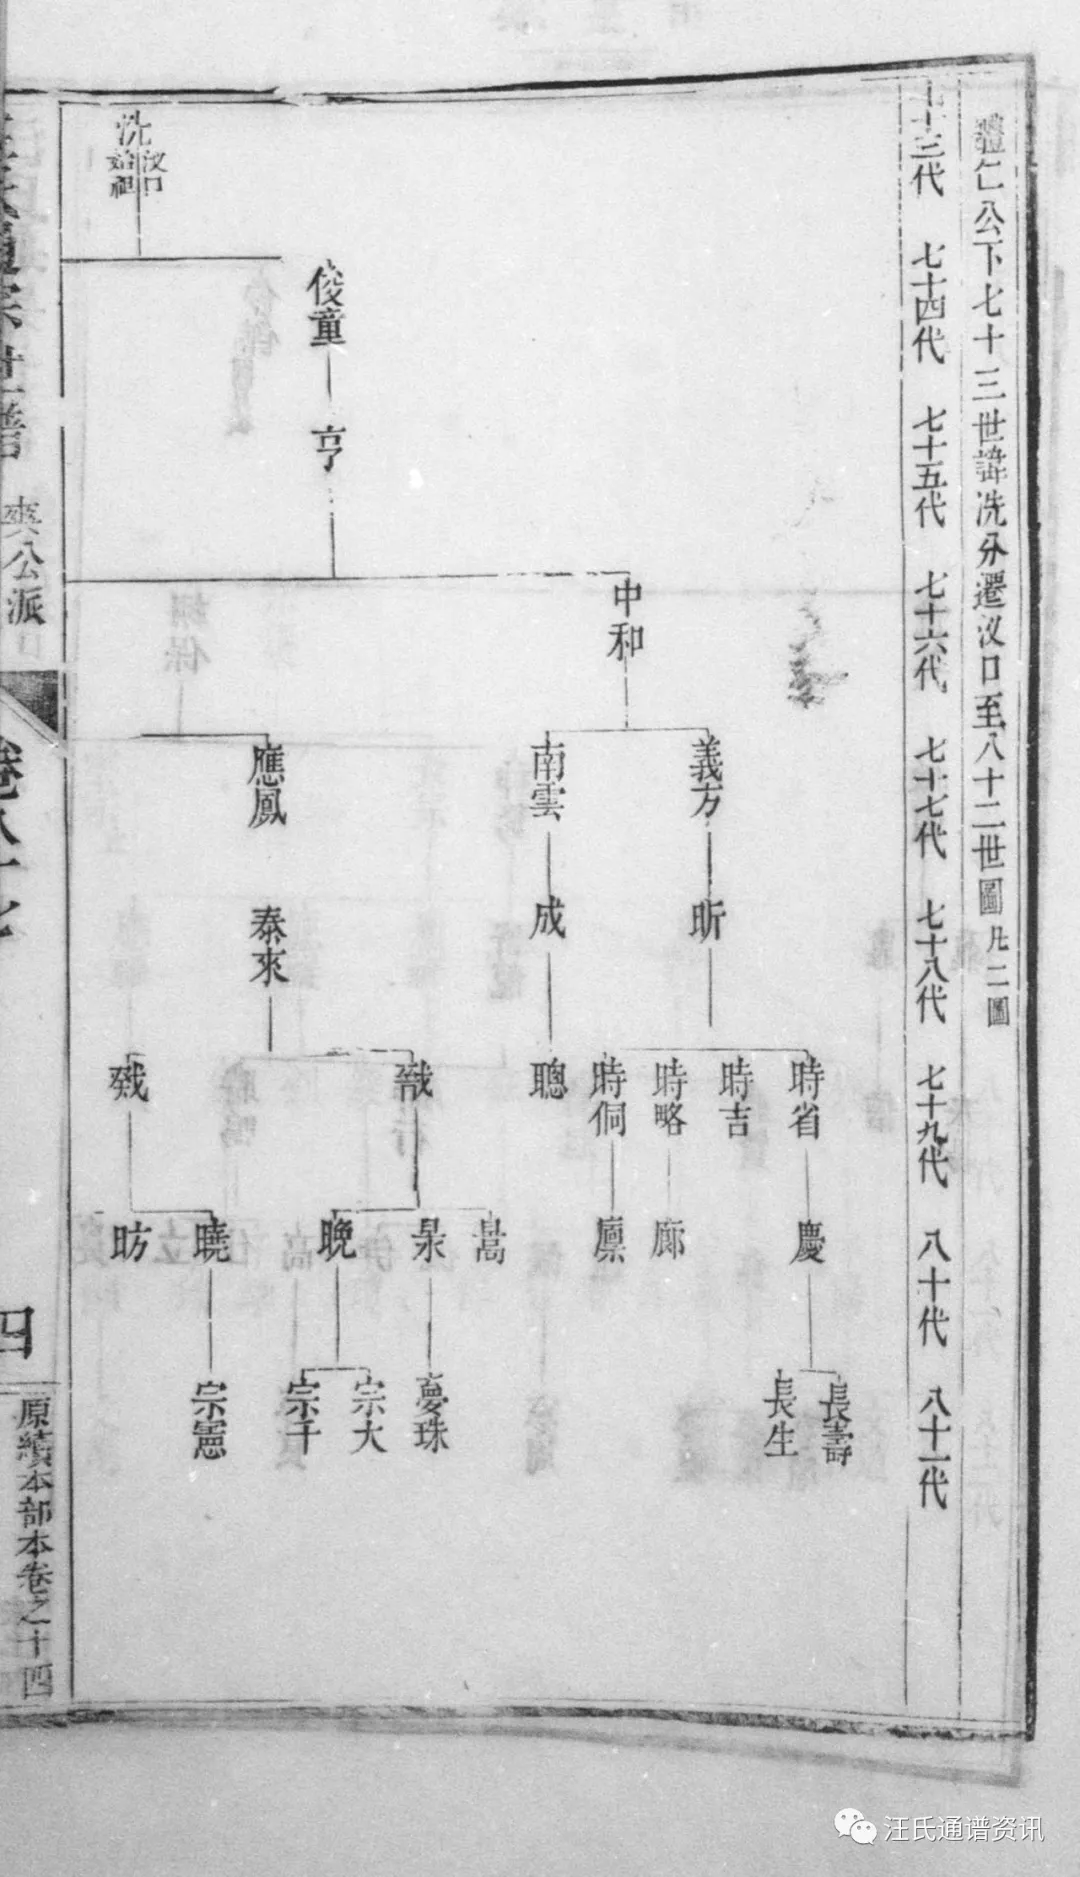 禮仁公下七十三世諱洗分遷汊口至八十二世圖凡二圖
七十三代 七十四代 七十五代 七十六代 七十七代 七十八代 七十九代 八十代 八十一代
洗
汊口
始祖
俊童
亨
中和
義方
南雲
應鳳
昕
成
泰來
時省
時吉
時略
時侗
聰
慶
廊
廩
暠
杲
晚
曉
昉
長壽
長生
夢珠
宗大
宗千
宗憲
爽公派
四
原績本部本卷之十四
汪氏通谱资讯